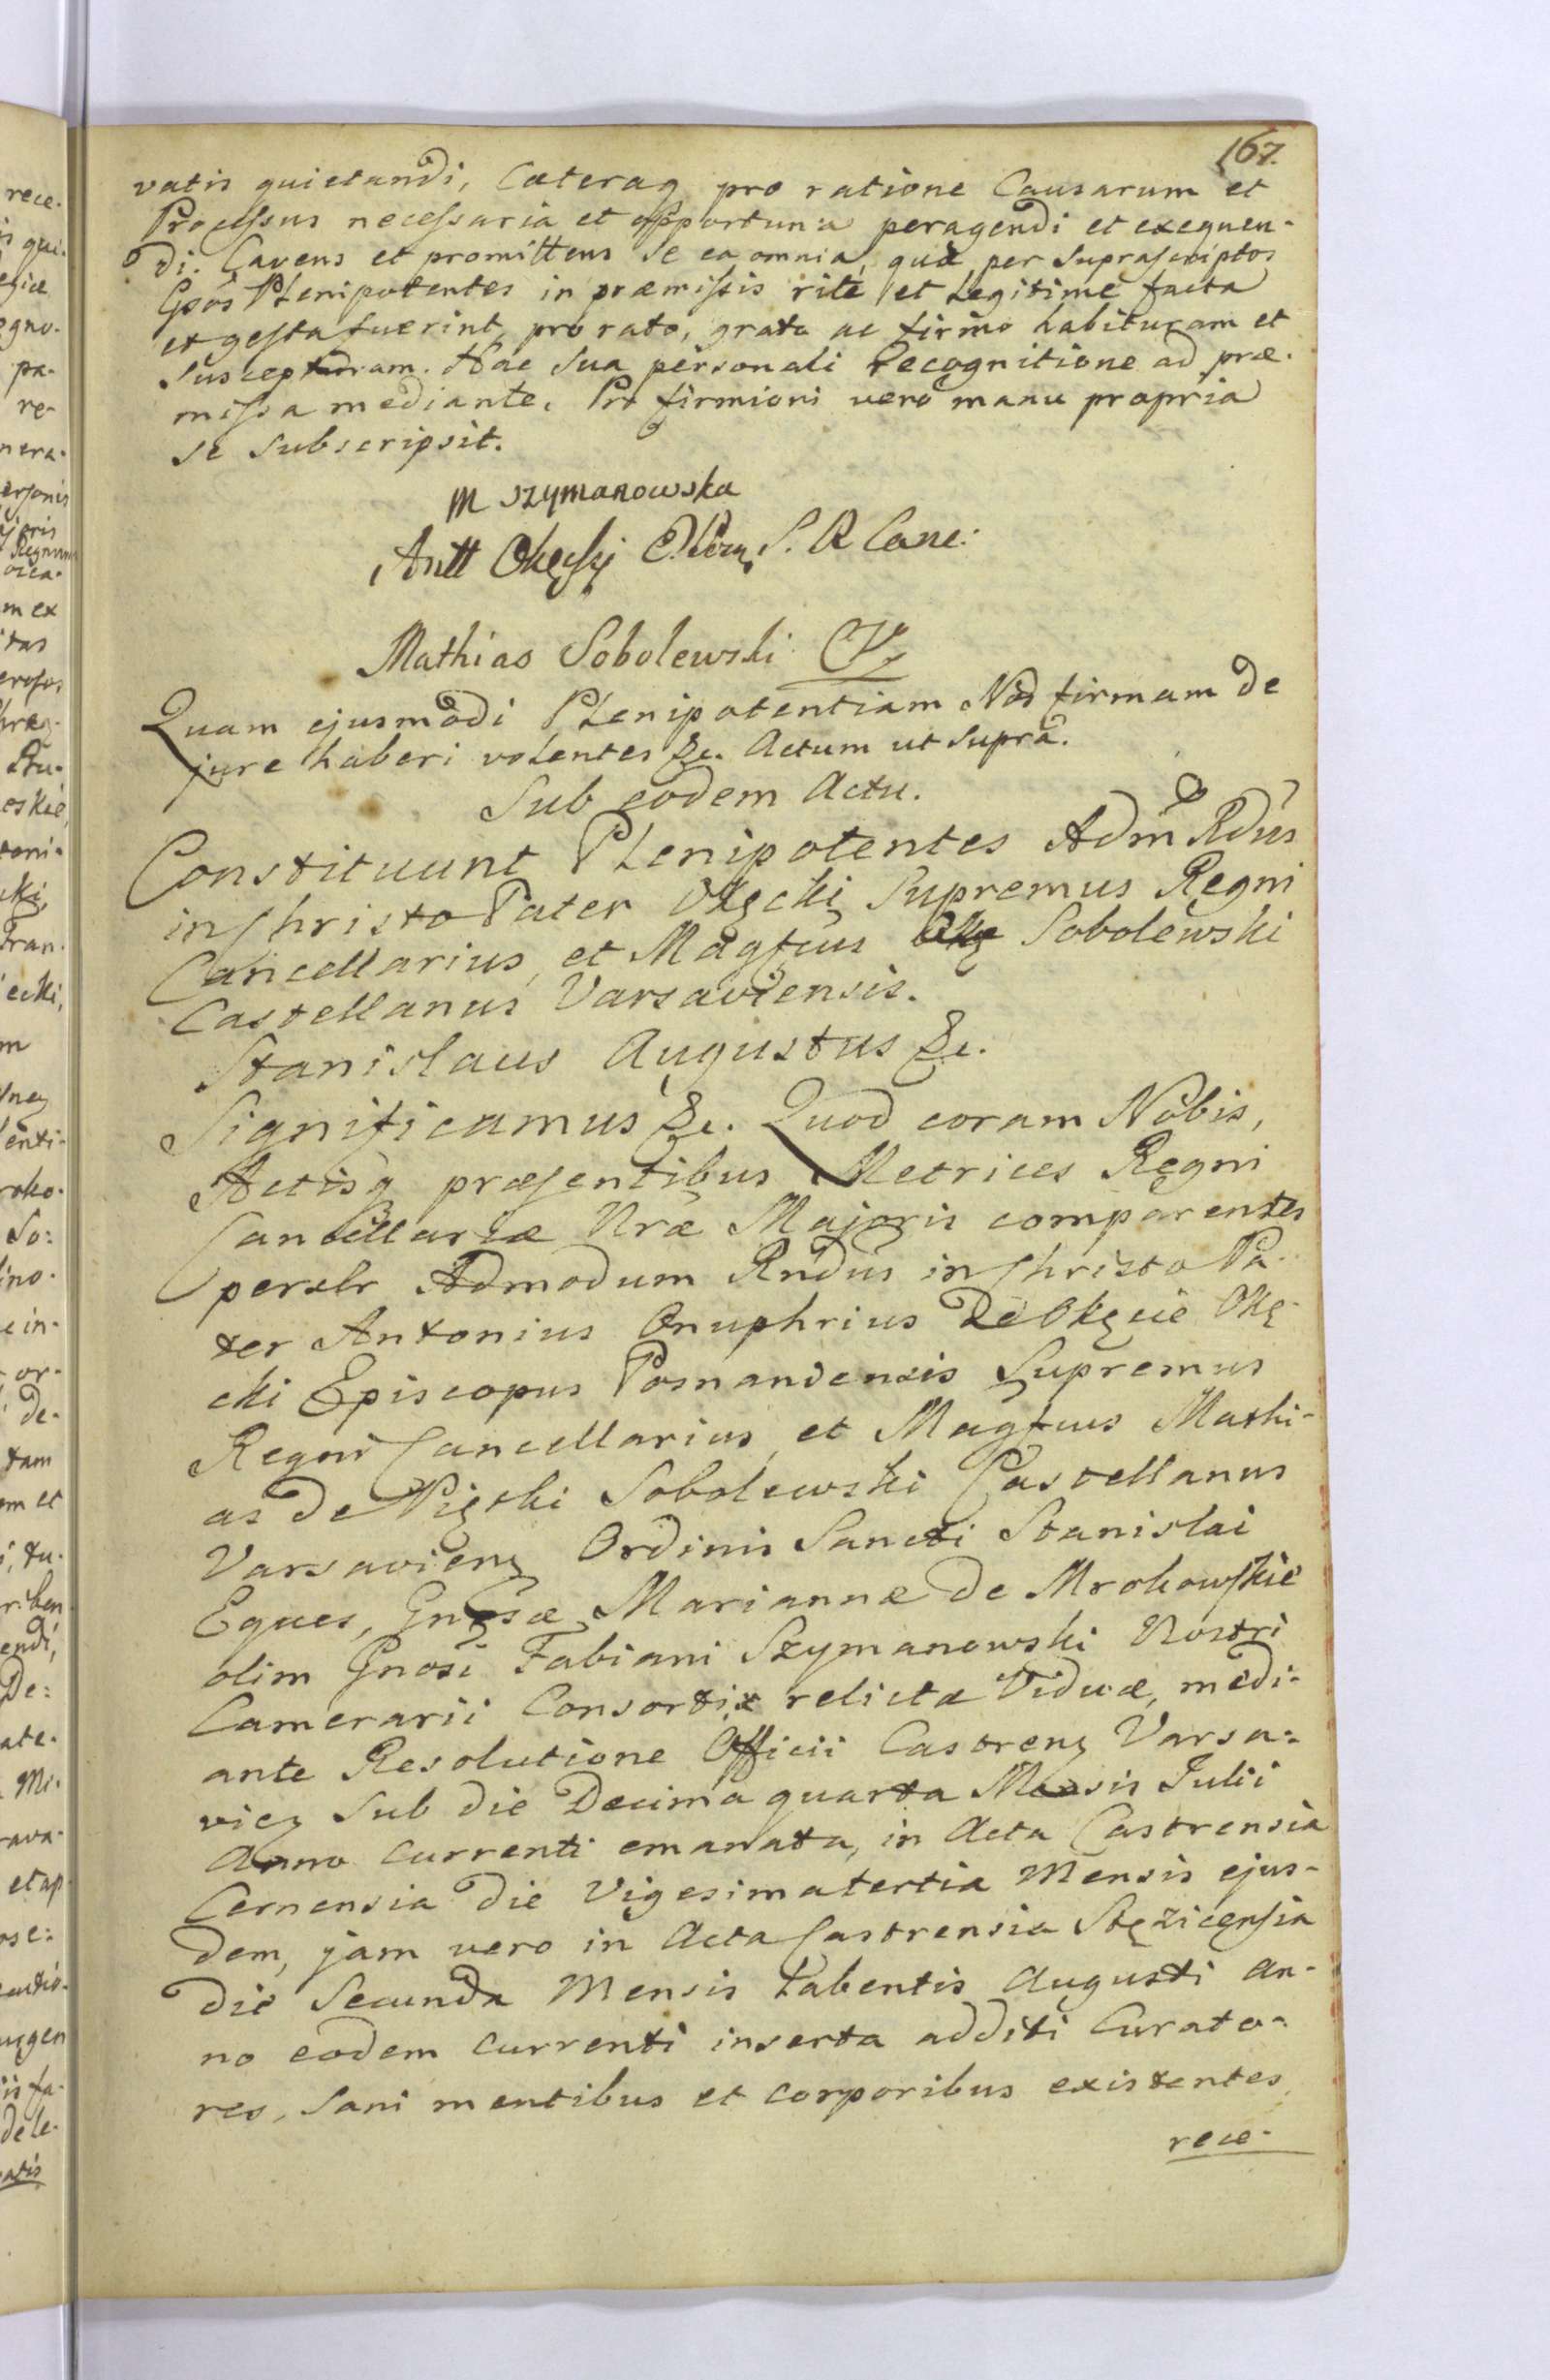 167.
vatis quietandi, Cæteraq pro ratione Causarum et
Processus necessaria et opportuna peragendi et exequen-
di. Cavens et promittens se ea omnia, quæ per Suprascriptos
Gsos Plenipotentes in præmissis rité et Legitimé facta
et gesta fuerint, pro rato, grato ac firmo habituram et
Suscepturam. Hac Sua personali Recognitione ad præ-
missa mediante. Pro firmiori vero manu propria
se Subscripsit.
M Szymanowska
Antt Okęcki S. R Canc:
Mathias Sobolewski CV
Quam ejusmodi Plenipotentiam Nos firmam de
jure haberi volentes &c. Actum ut Supra.
Sub eodem Actu.
Constituunt Plenipotentes Adm Rdus
in Christo Pater Okęcki Supremus Regni
Cancellarius, et Magfcus Sobolewski
Castellanus Varsaviensis.
Stanislaus Augustus &c.
Significamus &c. Quod coram Nobis,
Actisq præsentibus Metrices Regni
Cancellariæ Nræ Majoris comparentes
perslr Admodum Rndus in Christo Pa-
ter Antonius Onuphrius De Okęcie Okę-
cki Episcopus Posnaniensis Supremus
Regni Cancellarius, et Magfcus Mathi-
as de Piętki Sobolewski Castellanus
Varsavienz Ordinis Sancti Stanislai
Eques, Gnosæ Mariannæ de Mrokowskie
olim Gnosi Fabiani Szymanowski Nostri
Camerarii Consortis relictæ Viduæ, medi-
ante Resolutione Officii Castrenz Varsa-
viez Sub die Decima quarta Mensis Julii
Anno Currenti emanata, in Acta Castrensia
Cernensia die Vigesimatertia Mensis ejus-
dem, jam vero in Acta Castrensia Stęzicensia
die Secunda Mensis Labentis Augusti an-
no eodem Currenti inserta additi Curato-
res, Sani mentibus et Corporibus existentes,
rece-